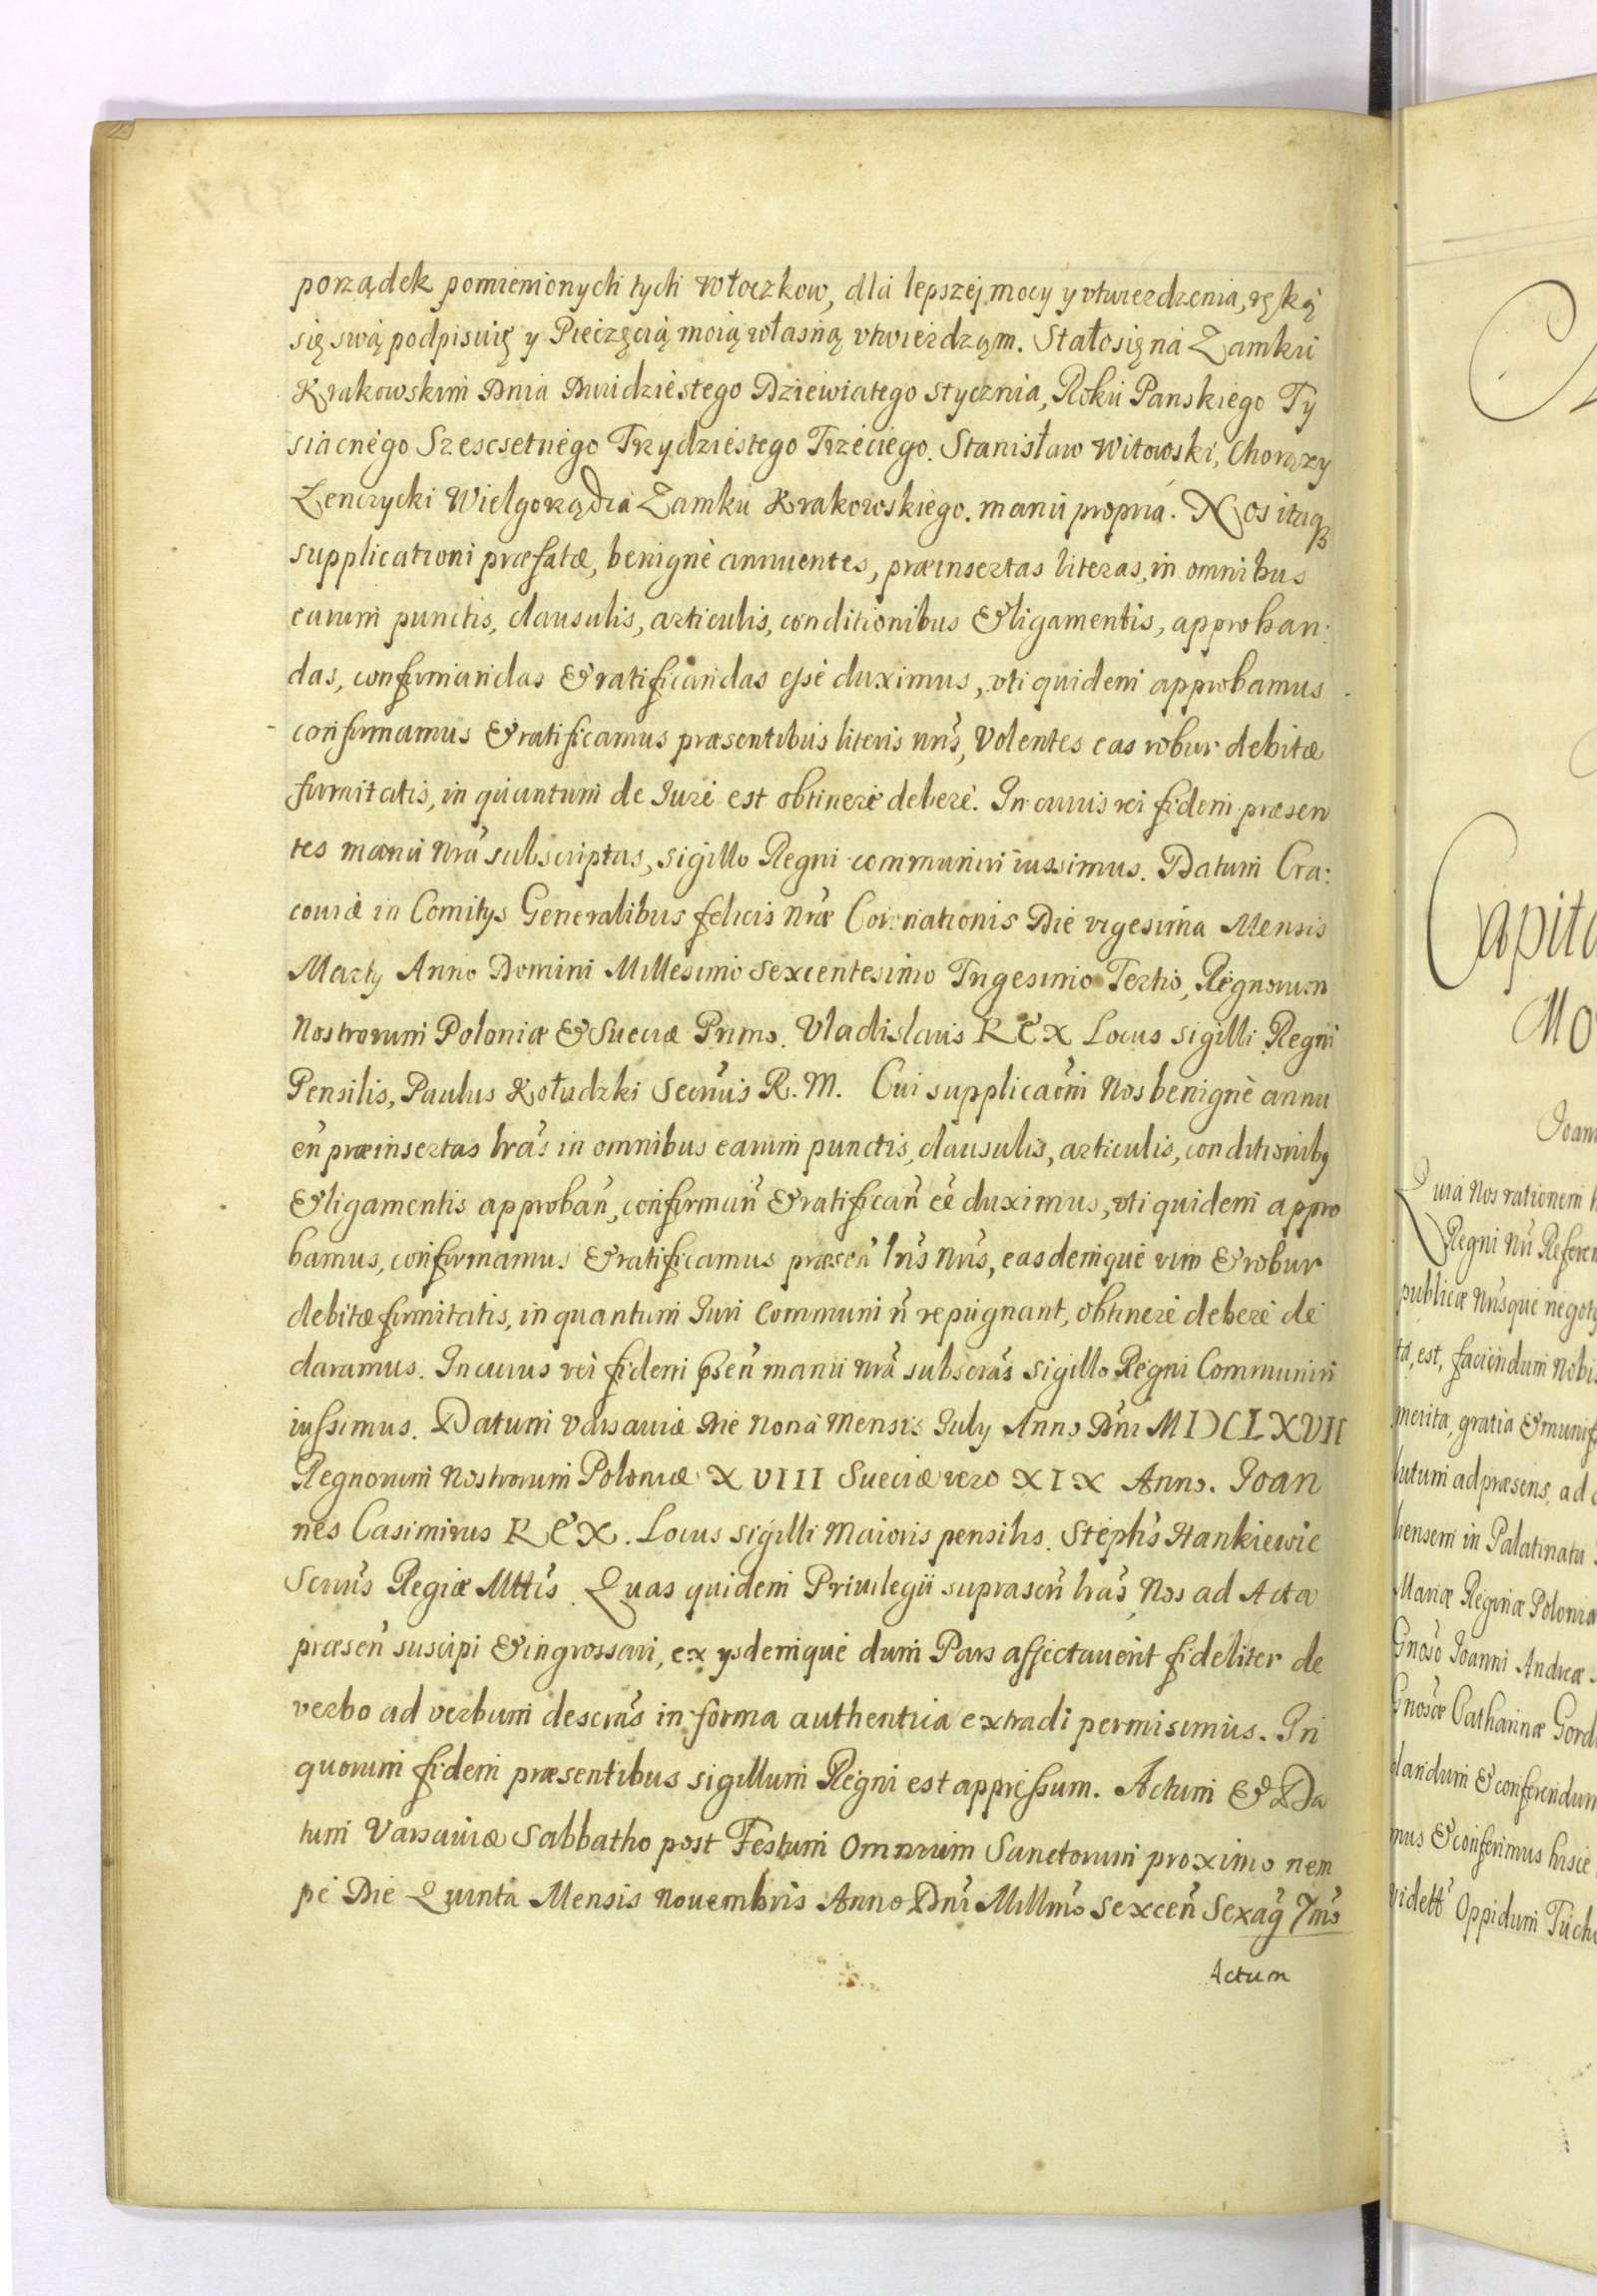 porządek pomienionych tych włoczkow, dla lepszej mocy y vtwierdzenia, ręką
się swą podpisuię y Pieczęcią moią własną vtwierdząm. Stało się na Zamku
Krakowskim Dnia Dwudziestego Dziewiatego stycznia, Roku Panskiego Ty
siącnego Szescsetnego Trzydziestego Trzeciego. Stanisław Witowski, Chorąży
Lenczycki Wielgorządzca Zamku Krakowskiego. manu propria. Nos itaqз
supplicationi præfatæ, benignè annuentes, præinsertas literas, in omnibus
earum punctis, clausulis, articulis, conditionibus & ligamentis, approban:
das, confirmandas & ratificandas esse duximus, vti quidem approbamus
confirmamus & ratificamus præsentibus literis nrīs, Volentes eas robur debitæ
firmitatis, in quantum de Iure est obtinere debere. In cuius rei fidem præsen
tes manu nrā subscriptas, sigillo Regni communiri iussimus. Datum Cra:
couiæ in Comitys Generalibus felicis nræ Coronationis Die vigesima Mensis
Marty Anno Domini Millesimo Sexcentesimo Trigesimo Tertio, Regnorum
Nostrorum Poloniæ & Sueciæ Primo. Vladislaus REX Locus sigilli Regni
Pensilis, Paulus Kołudzki Secrius R. M. Cui supplicaōni Nos benignè annu
eñ præinsertas lrās in omnibus earum punctis, clausulis, articulis, conditionibꝯ
& ligamentis approbañ, confirmañ & ratificañ eē duximus, vti quidem appro
bamus, confirmamus & ratificamus præseñ lrīs nrīs, easdemque vim & robur
debitæ firmitatis, in quantum Iuri communi ñ repugnant, obtinere debere de
claramus. In cuius rei fidem p̃señ manu nrā subscrās sigillo Regni Communiri
iussimus. Datum Varsauiæ Die nona Mensis July Anno Dñi MIƆCLXVII
Regnorum Nostrorum Poloniæ XVIII Sueciæ vero XIX Anno. Joan
nes Casimirus REX. Locus sigilli Maioris pensilis. Stephs Hankiewic
Secrius Regiæ Mttis. Quas quidem Priuilegii suprascrī lrās, Nos ad Acta
præseñ suscipi & ingrossari, ex ysdemque dum Pars affectauerit fideliter de
verbo ad verbum descrās in forma authentica extradi permisimus. In
quorum fidem præsentibus sigillum Regni est appressum. Actum & Da
tum Varsauiæ Sabbatho post Festum Omnium Sanctorum proximo nem
pe Die Quinta Mensis Nouembris Anno Dñi Millmo Sexceñ Sexag 7mo
Actum
Capita
Mo
Joan
Quia Nos rationem
Regni nri Referen
publicæ nrīsque negoty
ta, est, faciendum nobis
merita, gratia & munif
lutum ad præsens, ad
liensem in Palatinatu
Mariæ Reginæ Polonia
Gnoso Joanni Andreæ
Gnosæ Catharinæ Gord
dandum & conferendum
mus & conferimus hisce
vidett Oppidum Tucho